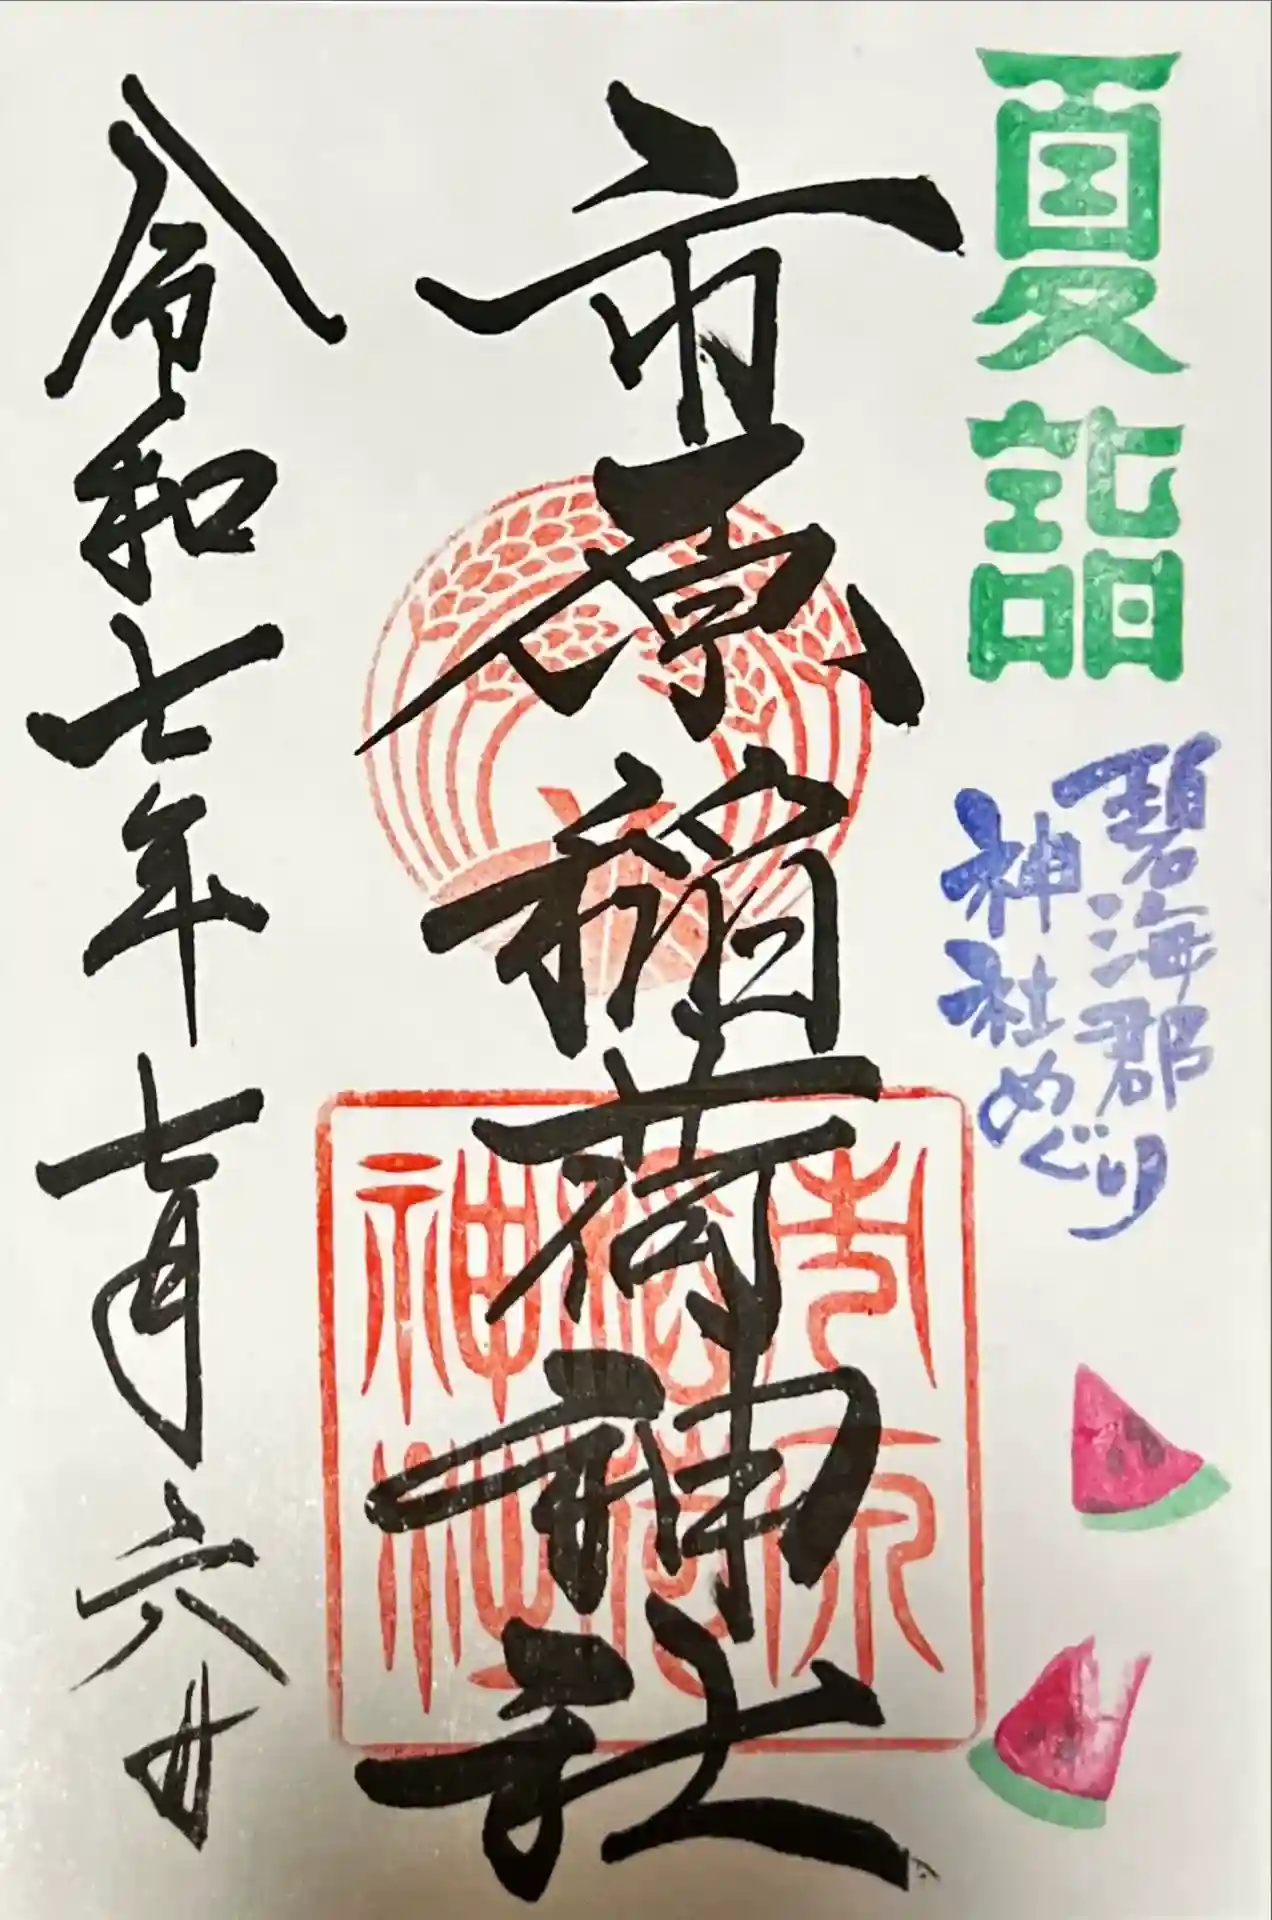 夏詣
碧海郡
神社めぐり
市原稲荷神社
市原
稲荷
神社
令和七年七月六日